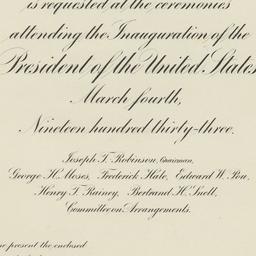 is requested at the ceremonies
attending the Inauguration of the
President of the United States
March fourth,
Nineteen hundred thirty-three.
Joseph T. Robinson, Chairman,
George H. Moses, Frederick Hale, Edward W. Pou,
Henry T. Rainey, Bertrand H. Snell,
Committee on Arrangements.
present the enclosed